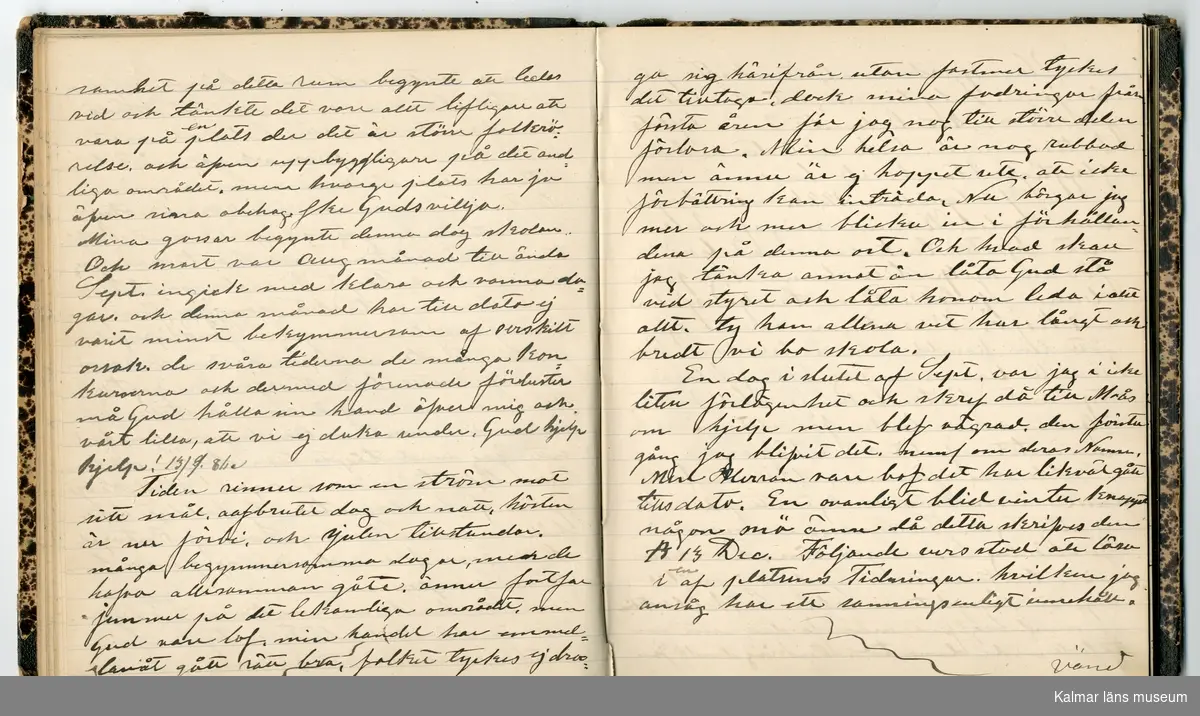 samhet på detta rum begynte att ledas
vid och tänkte det vore allt lifligare att
vara på en plats der det är större folkrö-
relse, och äfven uppbyggligare på det and
liga området, men hvarge plats har ju
äfven sina obehag, ske Guds vilja.
Mina gossar begynte denna dag skolan.
Och snart var Aug månad till ända
Sept. ingick med klara och varma da-
gar. och denna månad har till dato ej
varit minst bekymmersam af serskilt
orsak. de svåra tiderna de många kon-
kurserna och dermed förenade förluster
må Gud hålla sin hand öfver mig och
vårt lilla, att vi ej duka under, Gud hjelp
hjelp! 13/9. 86.
Tiden rinner som en ström mot
sitt mål, oafbrutet dag och natt, hösten
är ner förbi, och julen tillstundar.
många begymmersamma dagar, men de
hafva allesamman gått. ännu fortfar
jemmer på det lekamliga området, men
Gud vare lof, min handel har emmel-
lanåt gått rätt bra, folket tyckes ej dra-
ga sig härifrån utan fastmer tyckes
det tilltaga, dock mina fodringar från
första åren får jag nog till större delen
förlora. Min helsa är nog rubbad
men ännu är ej hoppet ute, att icke
förbättring kan inträda, Nu börgar jag
mer och mer blicka in i förhållan-
dena på denna ort. Och hvad skall
jag tänka annat än låta Gud stå
vid styret och låta honom leda i allt
allt. ty han allena vet hur långt och
bredt vi bo skola.
En dag i slutet af Sept. var jag i icke
liten förlägenhet och skref då till M-ås
om hjelp men blef vägrad, den första
gång jag blifvit det. nemf om deras Namn.
Men Herran vare lof det har likväl gått
tills dato. En ovanligt blid vinter knappt
någon snö ännu då detta skrifves den
13 Dec. Följande vers stod att läsa
i en af platsens Tidningar. hvilken jag
ansåg har ett sanningsenligt innehåll.
Vänd
Kalmar läns museum